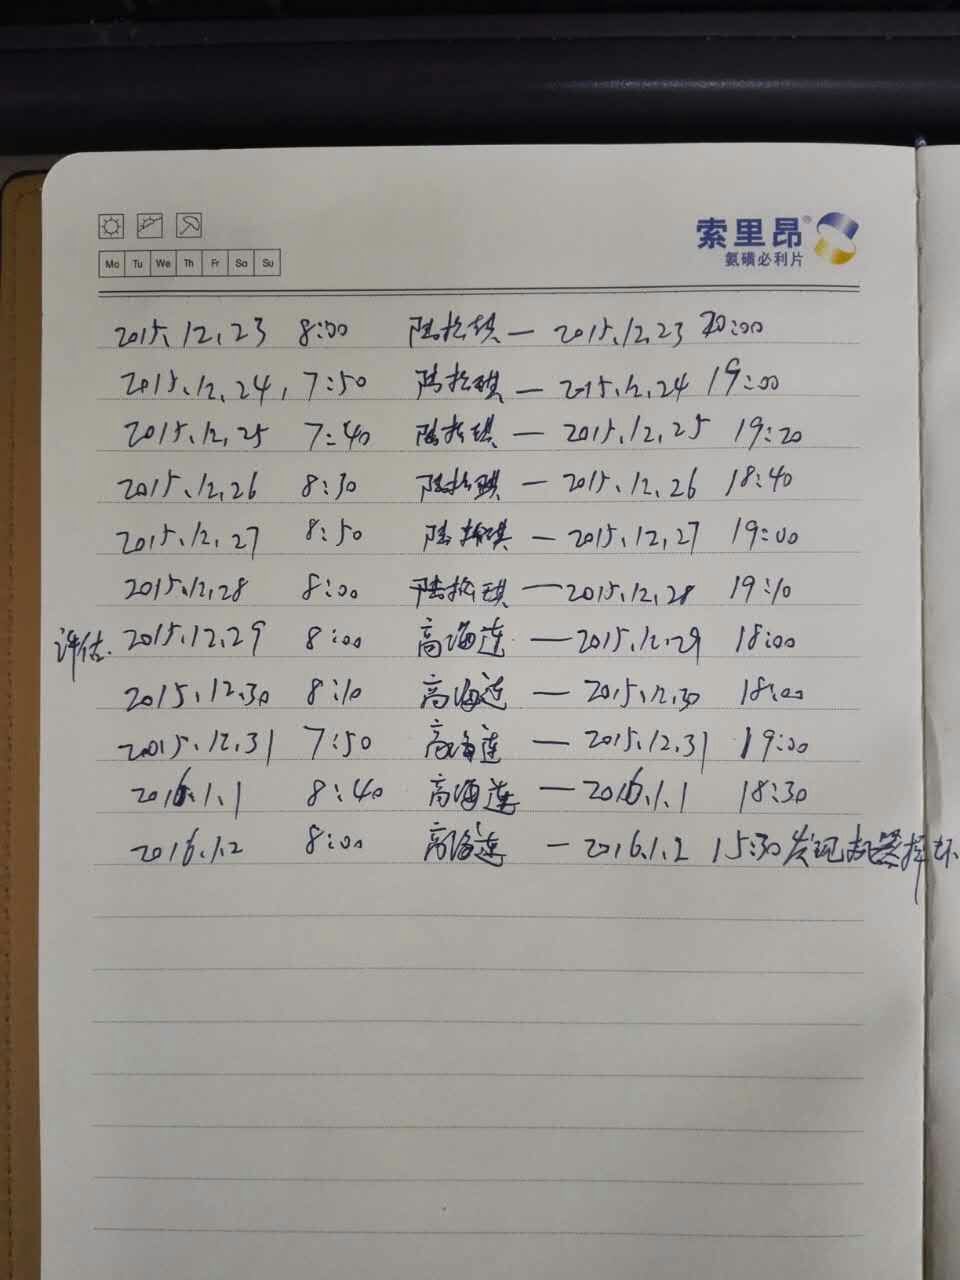 索里昂®
氨磺必利片
Mo Tu We Th Fr Sa Su
2015.12.23 8:00 陆松琪 — 2015.12.23 20:00
2015.12.24, 7:50 陆松琪 — 2015.12.24 19:00
2015.12.25 7:40 陆松琪 — 2015.12.25 19:20
2015.12.26 8:30 陆松琪 — 2015.12.26 18:40
2015.12.27 8:50 陆松琪 — 2015.12.27 19:00
2015.12.28 8:00 陆松琪 — 2015.12.28 19:10
评估. 2015.12.29 8:00 高海连 — 2015.12.29 18:00
2015.12.30 8:10 高海连 — 2015.12.30 18:00
2015.12.31 7:50 高海连 — 2015.12.31 19:00
2016.1.1 8:40 高海连 — 2016.1.1 18:30
2016.1.2 8:00 高海连 — 2016.1.2 15:30 发现机器摔坏